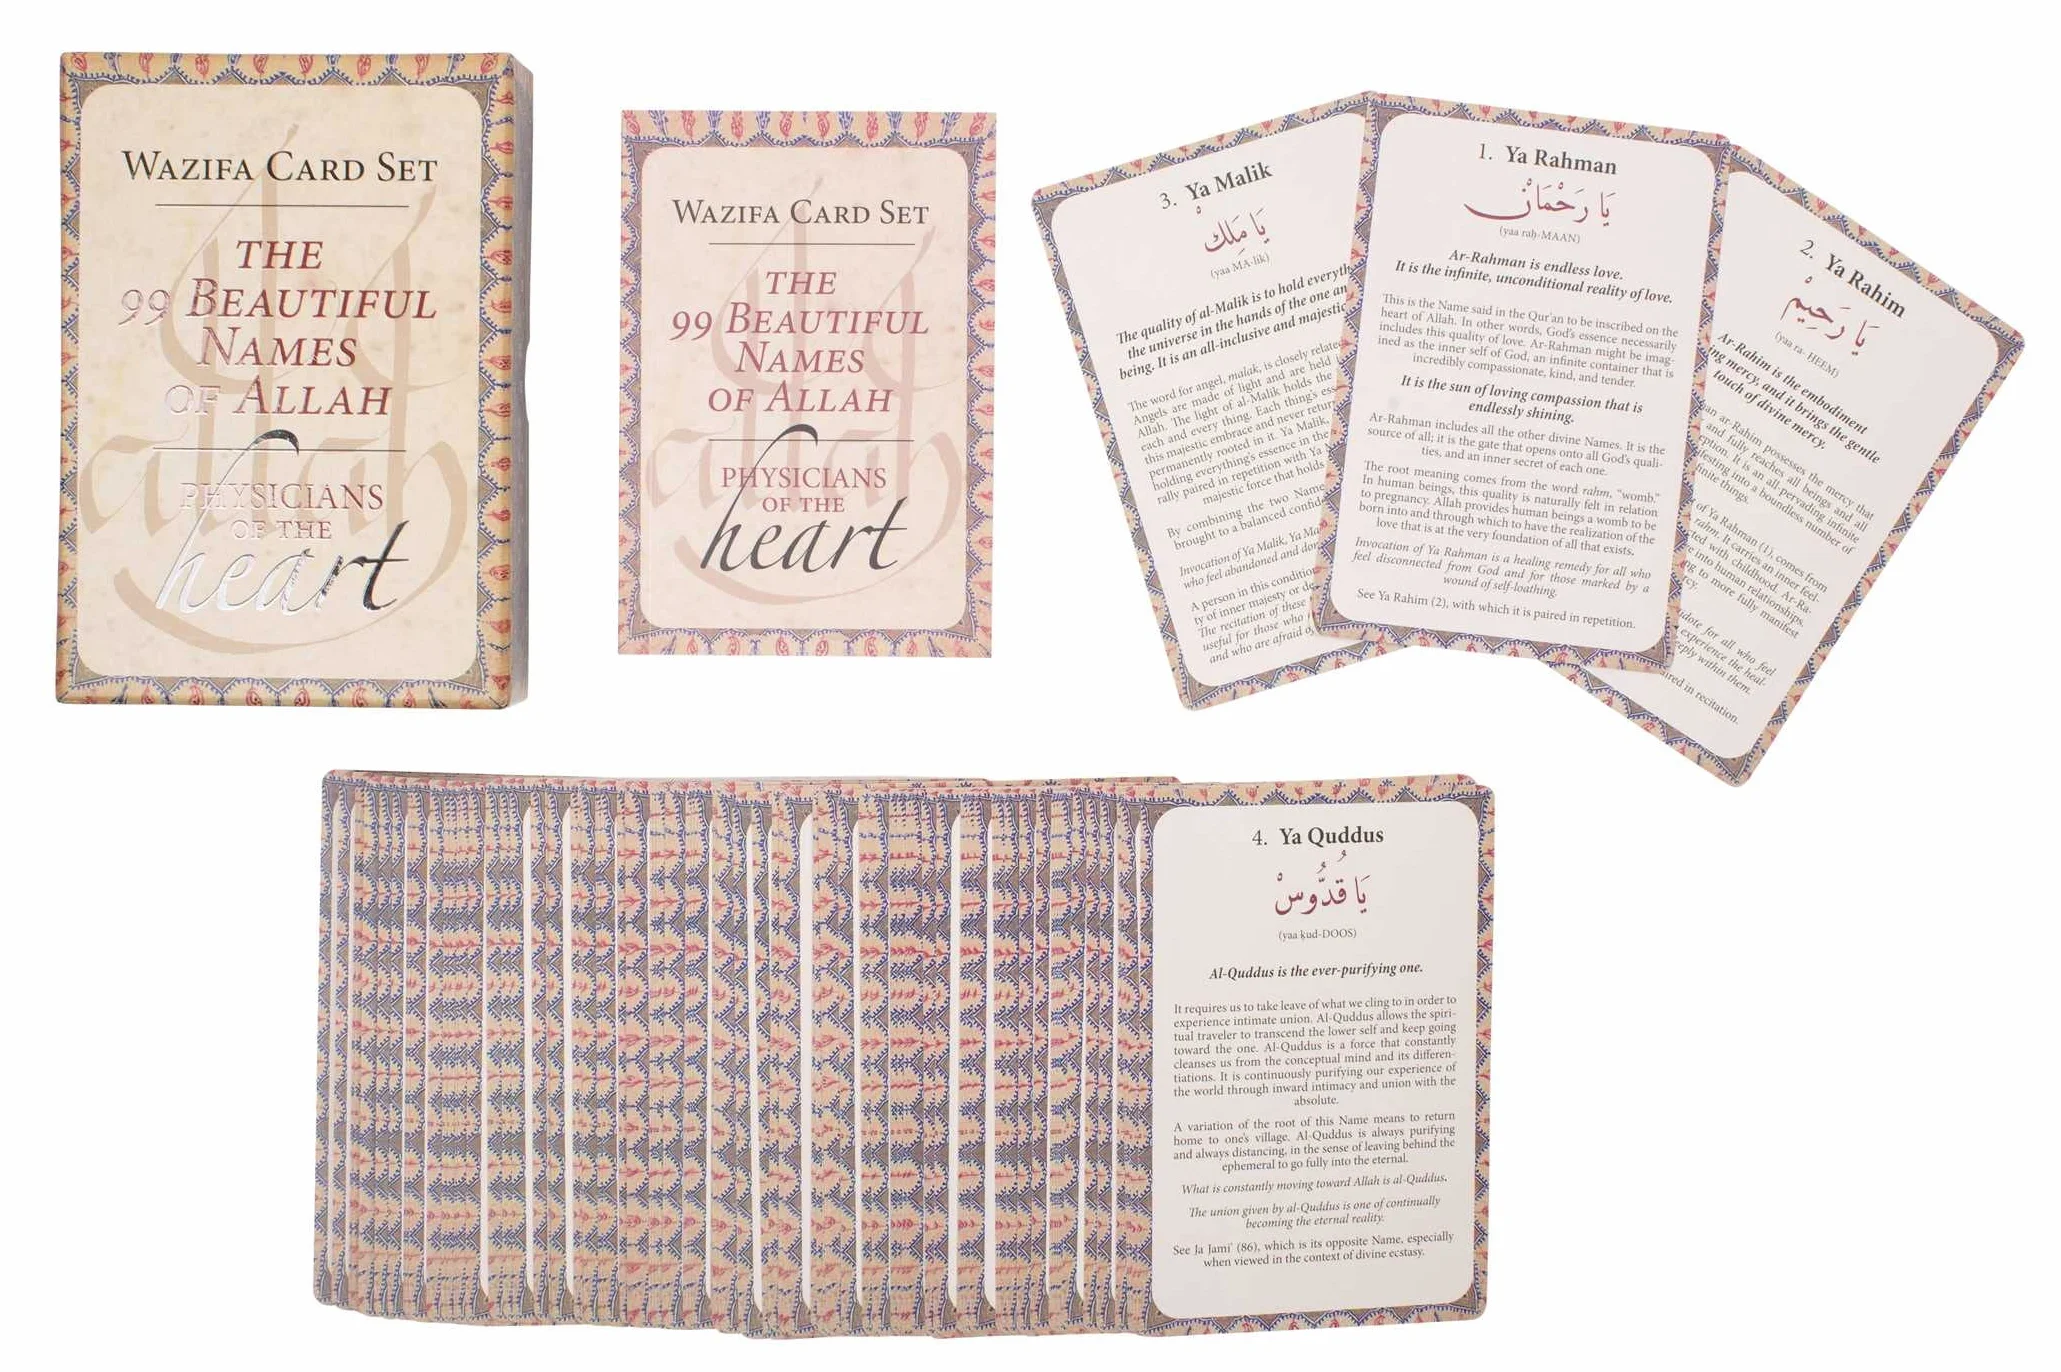 WAZIFA CARD SET
THE
99 BEAUTIFUL
NAMES
OF ALLAH
PHYSICIANS
OF THE
heart
WAZIFA CARD SET
THE
99 BEAUTIFUL
NAMES
OF ALLAH
PHYSICIANS
OF THE
heart
3. Ya Malik
يَا مَلِكْ
(yaa MA-lik)
The quality of al-Malik is to hold everyth
the universe in the hands of the one an
being. It is an all-inclusive and majestic
The word for angel, malak, is closely relate
Angels are made of light and are held
Allah. The light of al-Malik holds the
each and every thing. Each thing's ess
this majestic embrace and never retur
permanently rooted in it. Ya Malik,
holding everything's essence in the
rally paired in repetition with Ya
majestic force that holds
By combining the two Name
brought to a balanced confid
Invocation of Ya Malik, Ya Ma
who feel abandoned and don
A person in this condition
ty of inner majesty or de
The recitation of these
useful for those who
and who are afraid o
1. Ya Rahman
يَا رَحْمَانْ
(yaa raḥ-MAAN)
Ar-Rahman is endless love.
It is the infinite, unconditional reality of love.
This is the Name said in the Qur'an to be inscribed on the
heart of Allah. In other words, God's essence necessarily
includes this quality of love. Ar-Rahman might be imag-
ined as the inner self of God, an infinite container that is
incredibly compassionate, kind, and tender.
It is the sun of loving compassion that is
endlessly shining.
Ar-Rahman includes all the other divine Names. It is the
source of all; it is the gate that opens onto all God's quali-
ties, and an inner secret of each one.
The root meaning comes from the word rahm, "womb."
In human beings, this quality is naturally felt in relation
to pregnancy. Allah provides human beings a womb to be
born into and through which to have the realization of the
love that is at the very foundation of all that exists.
Invocation of Ya Rahman is a healing remedy for all who
feel disconnected from God and for those marked by a
wound of self-loathing.
See Ya Rahim (2), with which it is paired in repetition.
2. Ya Rahim
يَا رَحِيمْ
(yaa ra- HEEM)
Ar-Rahim is the embodiment
ing mercy, and it brings the gentle
touch of divine mercy.
an ar-Rahim possesses the mercy that
and fully reaches all beings and all
eption. It is an all pervading infinite
festing into a boundless number of
finite things.
of Ya Rahman (1), comes from
rahm. It carries an inner feel-
ted with childhood. Ar-Ra-
e into human relationships,
ng to more fully manifest
cy.
dote for all who feel
experience the heal-
eply within them.
ired in recitation.
4. Ya Quddus
يَا قُدُّوسْ
(yaa ḳud-DOOS)
Al-Quddus is the ever-purifying one.
It requires us to take leave of what we cling to in order to
experience intimate union. Al-Quddus allows the spiri-
tual traveler to transcend the lower self and keep going
toward the one. Al-Quddus is a force that constantly
cleanses us from the conceptual mind and its differen-
tiations. It is continuously purifying our experience of
the world through inward intimacy and union with the
absolute.
A variation of the root of this Name means to return
home to one's village. Al-Quddus is always purifying
and always distancing, in the sense of leaving behind the
ephemeral to go fully into the eternal.
What is constantly moving toward Allah is al-Quddus.
The union given by al-Quddus is one of continually
becoming the eternal reality.
See Ja Jami' (86), which is its opposite Name, especially
when viewed in the context of divine ecstasy.